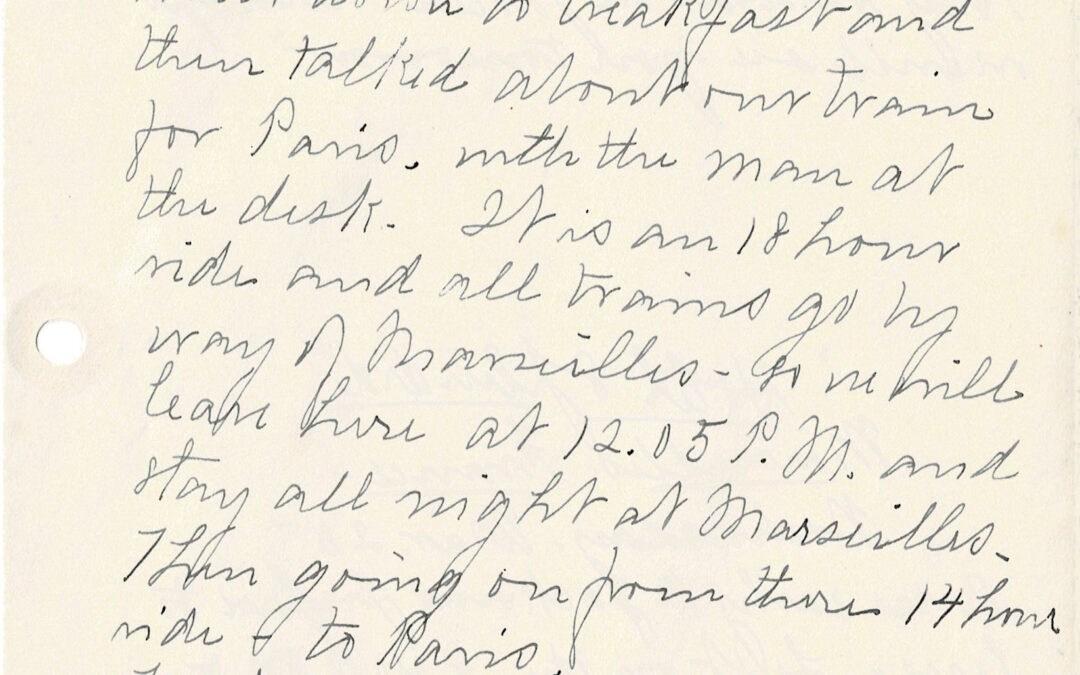 down to breakfast and
then talked about our train
for Paris. with the man at
the desk. It is an 18 hour
ride and all trains go by
way of Marseilles - so we will
leave here at 12.05 P.M. and
stay all night at Marseilles -
Then going on from there 14 hour
ride - to Paris